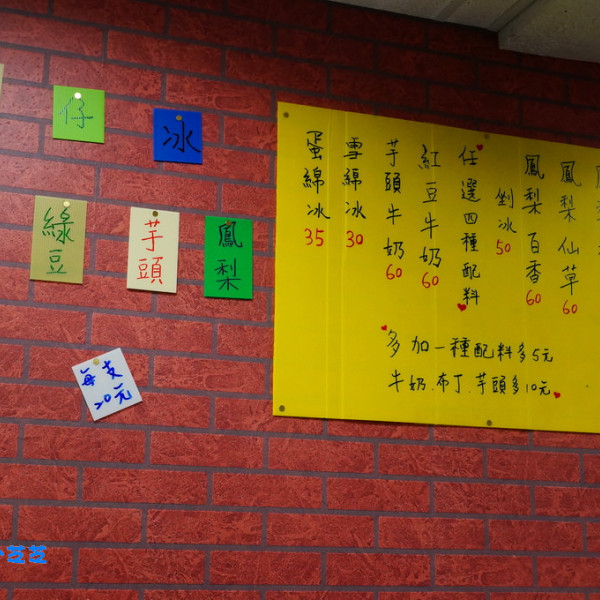 仔
冰
綠豆
芋頭
鳳梨
每支
20元
鳳梨仙草60
鳳梨百香60
剉冰50
任選四種配料
紅豆牛奶60
芋頭牛奶60
雪綿冰30
蛋綿冰35
多加一種配料多5元
牛奶.布丁.芋頭多10元
芝芝